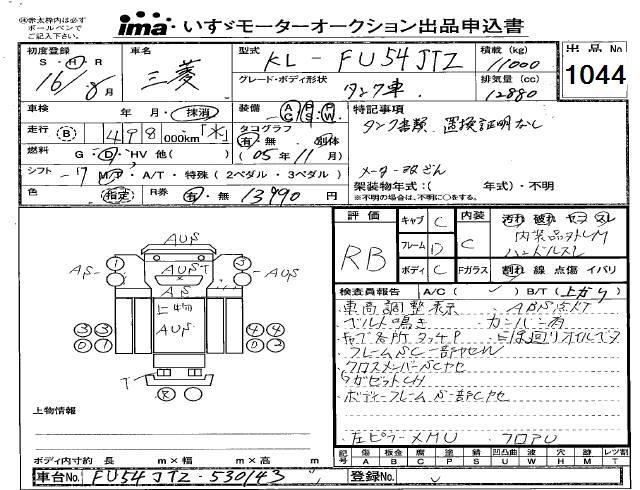 ㊟赤太枠内は必ず
ボールペンで
ご記入下さい。
ima いすゞモーターオークション出品申込書
初度登録
S・H・R
16/8月
車名
三菱
型式
KL-FU54JTZ
積載 (kg)
11000
グレード・ボディ形状
タンク車
排気量 (cc)
12880
出品No
1044
車検 年 月・抹消
装備 AC PS PW
特記事項
タンク書類 置換証明なし
走行 B 498 000km「水」
タコグラフ
有・無 別体
(05年11月)
燃料 G・D・HV 他( )
シフト 7 MT・A/T・特殊(2ペダル・3ペダル)
架装物年式:( 年式)・不明
※不明の場合は、不明に○をする。
色 指定 R券 有・無 13990 円
評価
RB
キャブ C
フレーム D
ボディ C
内装 C
汚れ 破れ セコ スレ
内装品外しM
ハンドルスレ
Fガラス 割れ 線 点傷 イバリ
検査員報告 A/C( ) B/T(上がり)
車高調整表示 ABS点灯
ベルト鳴き
キャブ各所タッチP
フレームSC一部ヤセル
クロスメンバーSCヤセ
ガゼットCH
ボディーフレームS一部Cヤセ
左ピラーXMU フロアU
AUS
AUST
AS
AS
AS
上物
AUS
1
3
3
3
0
2
4
4
T
R
上物情報
ボディ内寸約 長 m×幅 m×高 m
記号 傷A 板金B 腐C 塗P 錆S 凹凸曲U 波W 穴H 無M 交T レツ割1
車台No. FU54JTZ-530143
登録No.